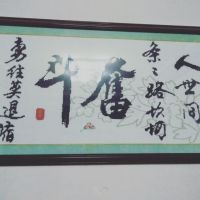 人世间
条条路坎坷
奋斗
勇往莫退缩